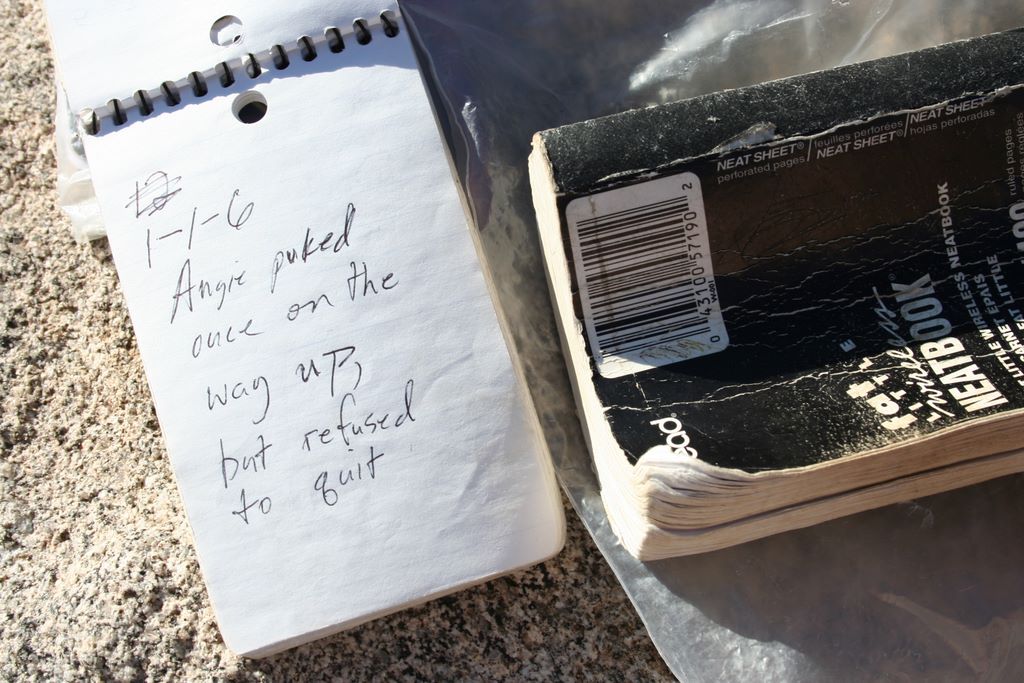 1-1-6
Angie puked
once on the
way up,
but refused
to quit
NEAT SHEET® / feuilles perforées / NEAT SHEET®
perforated pages / NEAT SHEET® / hojas perforadas
0 43100 57190 2
fat lit'l e
wireless
NEATBOOK®
LITTLE WIRELESS NEATBOOK
ruled pages